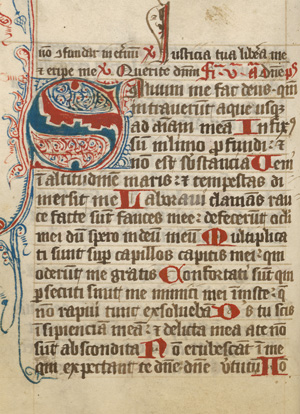 nō ꝯfundar in eternū Iusticia tua libera me
et eripe me Querite dominū
Saluum me fac deus qm̄
intrauerunt aque usqꝫ
ad aīam meā Infixꝰ
sum ī limo profundi et
nō est substancia Ueni
ī altitudinē maris et tempestas di
mersit me Laboraui clamans rau
ce facte sunt fauces mee defecerūt oculi
mei dū spero in deum meū Multiplica
ti sunt suꝑ capillos capitis mei qui
oderūt me gratis Confortati sūt qui
ꝑsecuti sunt me inimici mei iniuste q̄
nō rapui tunc exsoluebā Deus tu scis
īsipienciā meā et delicta mea a te nō
sunt abscondita Nō erubescāt ī me
qui expectant te dn̄e dn̄e uirtutū Nō